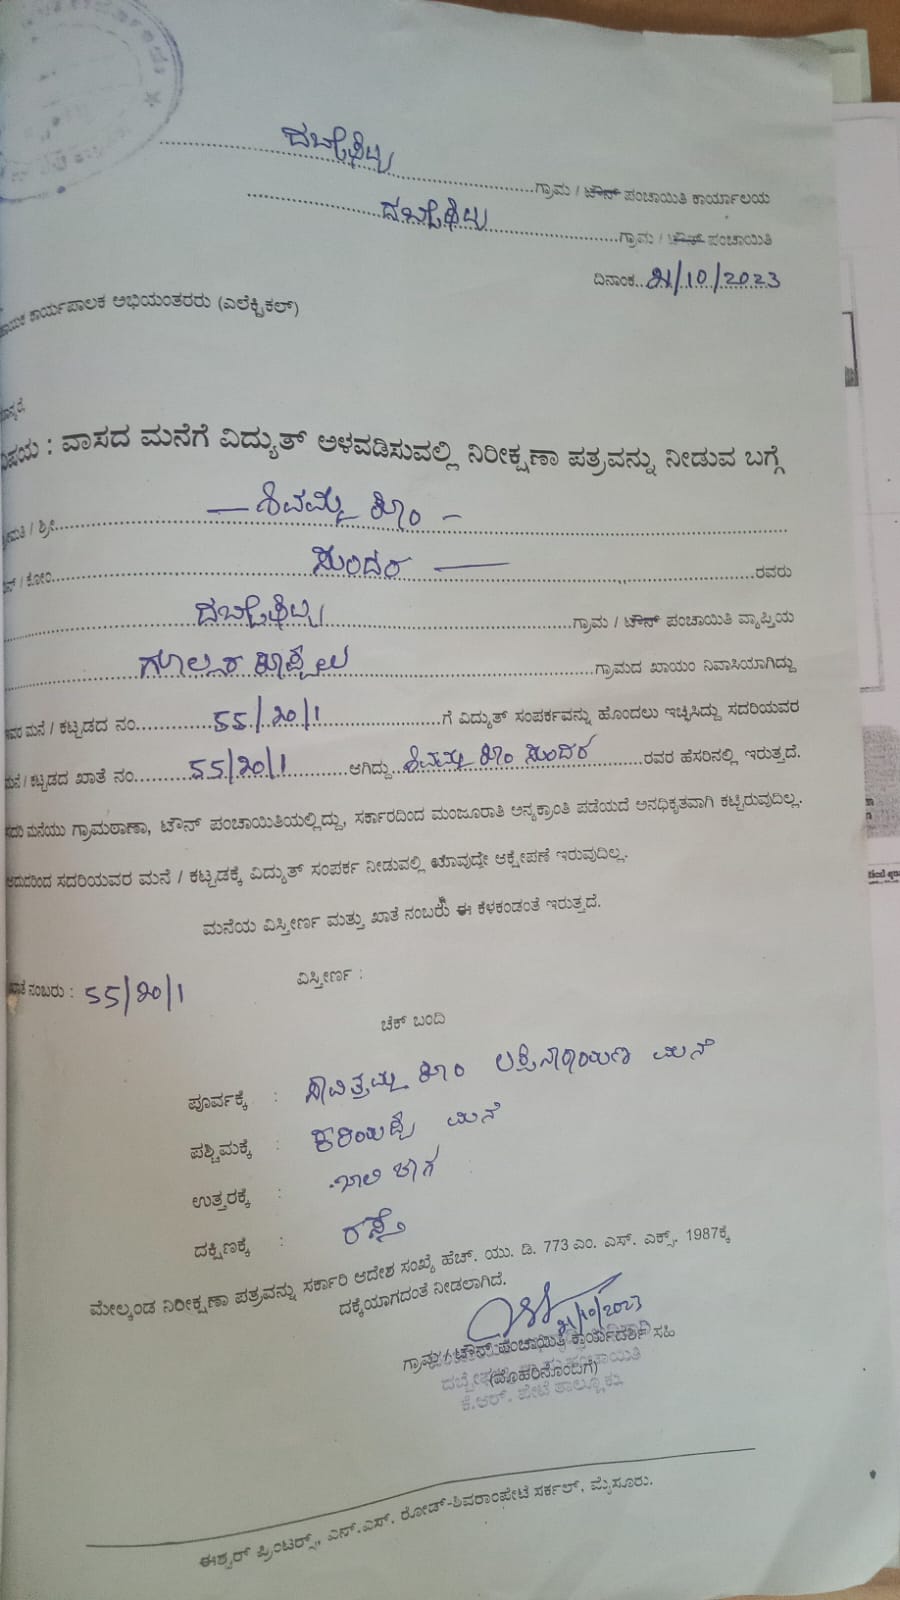 ದಬ್ಬೇಘಟ್ಟ ಗ್ರಾಮ / ಟೌನ್ ಪಂಚಾಯಿತಿ ಕಾರ್ಯಾಲಯ
ದಬ್ಬೇಘಟ್ಟ ಗ್ರಾಮ / ಟೌನ್ ಪಂಚಾಯಿತಿ
ದಿನಾಂಕ.. 21/10/2023
ಕಾರ್ಯಪಾಲಕ ಅಭಿಯಂತರರು (ಎಲೆಕ್ಟ್ರಿಕಲ್)
ವಿಷಯ : ವಾಸದ ಮನೆಗೆ ವಿದ್ಯುತ್ ಅಳವಡಿಸುವಲ್ಲಿ ನಿರೀಕ್ಷಣಾ ಪತ್ರವನ್ನು ನೀಡುವ ಬಗ್ಗೆ
ಶ್ರೀಮತಿ / ಶ್ರೀ — ಶಿವಮ್ಮ ಕೋಂ —
ಬಿನ್ / ಕೋಂ ಸುಂದರ — ರವರು
ದಬ್ಬೇಘಟ್ಟ ಗ್ರಾಮ / ಟೌನ್ ಪಂಚಾಯಿತಿ ವ್ಯಾಪ್ತಿಯ
ಗೊಲ್ಲರ ಕೊಪ್ಪಲು ಗ್ರಾಮದ ಖಾಯಂ ನಿವಾಸಿಯಾಗಿದ್ದು
ಇವರ ಮನೆ / ಕಟ್ಟಡದ ನಂ. 55/20/1 ಗೆ ವಿದ್ಯುತ್ ಸಂಪರ್ಕವನ್ನು ಹೊಂದಲು ಇಚ್ಛಿಸಿದ್ದು ಸದರಿಯವರ
ಮನೆ / ಕಟ್ಟಡದ ಖಾತೆ ನಂ. 55/20/1 ಆಗಿದ್ದು ಶಿವಮ್ಮ ಕೋಂ ಸುಂದರ ರವರ ಹೆಸರಿನಲ್ಲಿ ಇರುತ್ತದೆ.
ಸದರಿ ಮನೆಯು ಗ್ರಾಮಠಾಣಾ, ಟೌನ್ ಪಂಚಾಯಿತಿಯಲ್ಲಿದ್ದು, ಸರ್ಕಾರದಿಂದ ಮಂಜೂರಾತಿ ಅನ್ಯಕ್ರಾಂತಿ ಪಡೆಯದೆ ಅನಧಿಕೃತವಾಗಿ ಕಟ್ಟಿರುವುದಿಲ್ಲ.
ಆದುದರಿಂದ ಸದರಿಯವರ ಮನೆ / ಕಟ್ಟಡಕ್ಕೆ ವಿದ್ಯುತ್ ಸಂಪರ್ಕ ನೀಡುವಲ್ಲಿ ಯಾವುದೇ ಆಕ್ಷೇಪಣೆ ಇರುವುದಿಲ್ಲ.
ಮನೆಯ ವಿಸ್ತೀರ್ಣ ಮತ್ತು ಖಾತೆ ನಂಬರು ಈ ಕೆಳಕಂಡಂತೆ ಇರುತ್ತದೆ.
ಖಾತೆ ನಂಬರು : 55/20/1 ವಿಸ್ತೀರ್ಣ :
ಚೆಕ್ ಬಂದಿ
ಪೂರ್ವಕ್ಕೆ : ಸಾವಿತ್ರಮ್ಮ ಕೋಂ ಲಕ್ಷ್ಮಿನಾರಾಯಣ ಮನೆ
ಪಶ್ಚಿಮಕ್ಕೆ : ಕರಿಯಪ್ಪ ಮನೆ
ಉತ್ತರಕ್ಕೆ : ಖಾಲಿ ಜಾಗ
ದಕ್ಷಿಣಕ್ಕೆ : ರಸ್ತೆ
ಮೇಲ್ಕಂಡ ನಿರೀಕ್ಷಣಾ ಪತ್ರವನ್ನು ಸರ್ಕಾರಿ ಆದೇಶ ಸಂಖ್ಯೆ ಹೆಚ್. ಯು. ಡಿ. 773 ಎಂ. ಎಸ್. ಎಕ್ಸ್. 1987ಕ್ಕೆ
ದಕ್ಕೆಯಾಗದಂತೆ ನೀಡಲಾಗಿದೆ.
21/10/2023
ಗ್ರಾಮ / ಟೌನ್ ಪಂಚಾಯಿತಿ ಕಾರ್ಯದರ್ಶಿ ಸಹಿ
(ಮೊಹರಿನೊಂದಿಗೆ)
ಕೆ.ಆರ್. ಪೇಟೆ ತಾಲ್ಲೂಕು
ಈಶ್ವರ್ ಪ್ರಿಂಟರ್ಸ್, ಎನ್.ಎಸ್. ರೋಡ್-ಶಿವರಾಂಪೇಟೆ ಸರ್ಕಲ್, ಮೈಸೂರು.